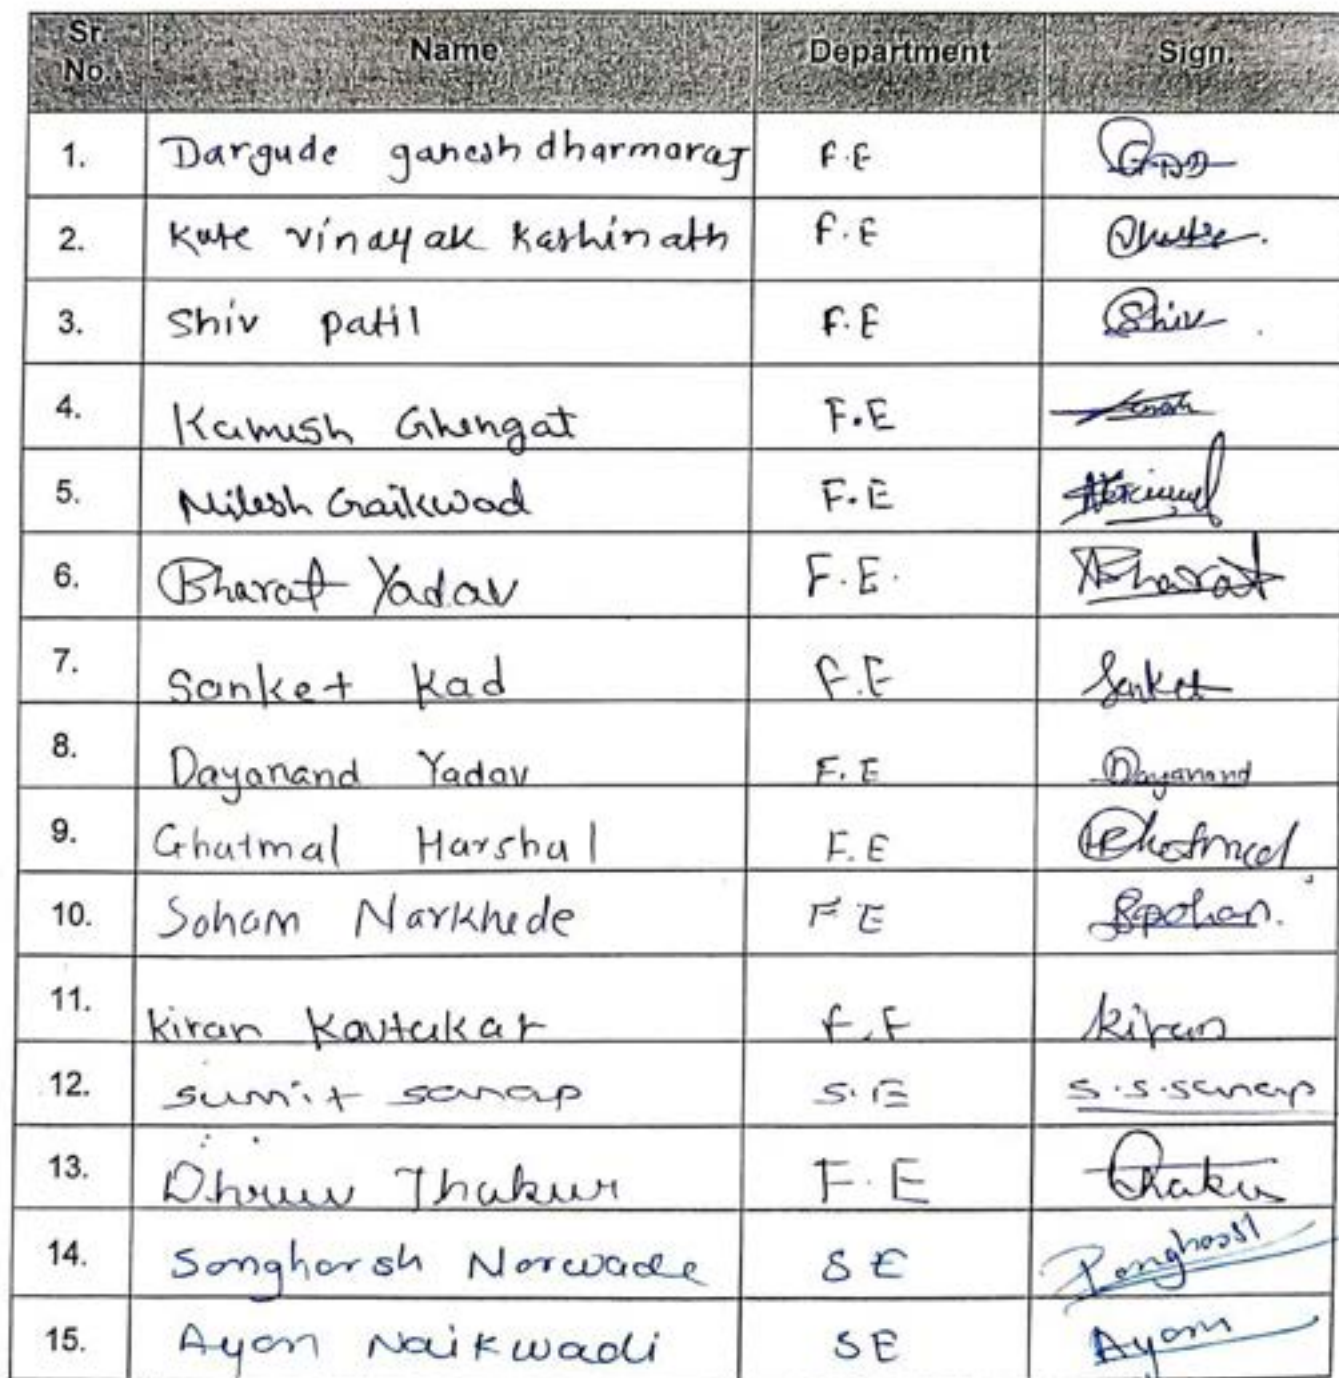 Sr. No. Name Department Sign.
1. Dargude ganesh dharmaraj F.E GDD
2. Kute vinayak Kashinath F.E
3. Shiv patil F.E Shiv
4. Kamesh Ghengat F.E
5. Nilesh Gaikwad F.E
6. Bharat Yadav F.E. Bharat
7. Sanket Kad F.E Sanket
8. Dayanand Yadav F.E Dayanand
9. Ghatmal Harshal F.E Ghatmal
10. Soham Narkhede F E
11. Kiran Kavtakar F.F kiran
12. sumit sanap S.E s.s.sanap
13. Dhruv Thakur F.E Thakur
14. Songhorsh Norwade SE
15. Ayan Naikwadi SE Ayan